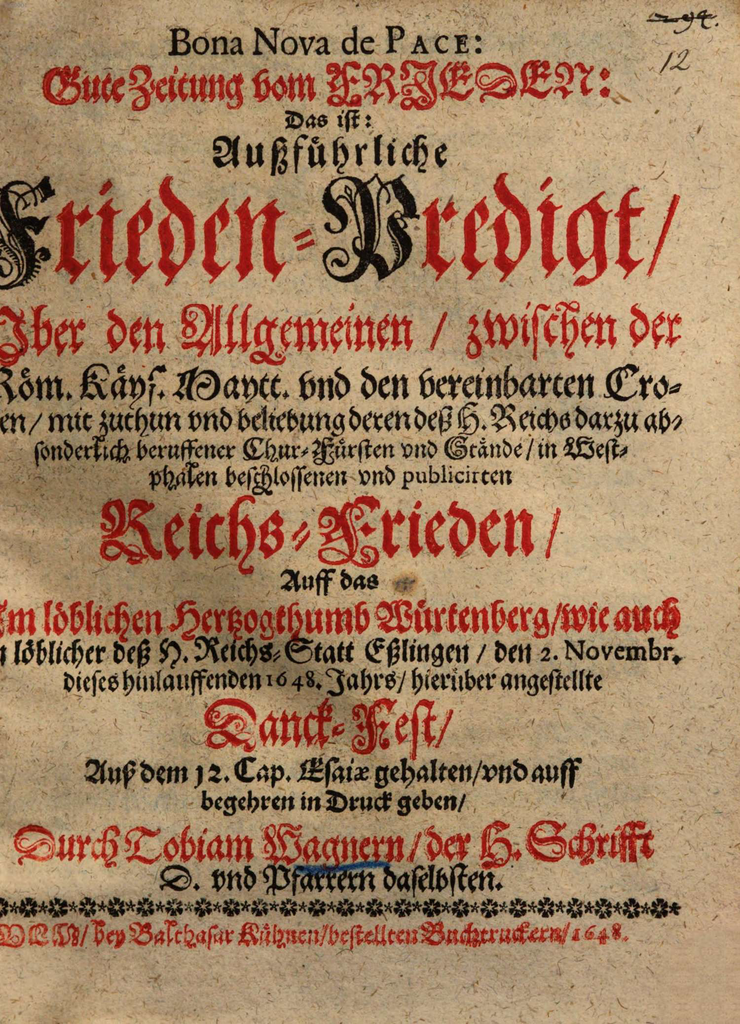 94.
12
Bona Nova de PACE:
Gute Zeitung vom FRJEDEN:
Das ist:
Außführliche
Frieden-Predigt/
Vber den Allgemeinen / zwischen der
Röm. Käys. Maytt. vnd den vereinbarten Cro-
en/ mit zuthun vnd beliebung deren deß H. Reichs darzu ab-
sonderlich beruffener Chur-Fürsten vnd Stände/ in West-
phalen beschlossenen vnd publicirten
Reichs-Frieden/
Auff das
Im löblichen Hertzogthumb Würtenberg/wie auch
n löblicher deß H. Reichs-Statt Eßlingen / den 2. Novembr.
dieses hinlauffenden 1648. Jahrs/ hierüber angestellte
Danck-Fest/
Auß dem 12. Cap. Esaiæ gehalten/vnd auff
begehren in Druck geben/
Durch Tobiam Wagnern/der H. Schrifft
D. vnd Pfarrern daselbsten.
VLM/ bey Balthasar Kühnen/bestellten Buchtruckern/1648.